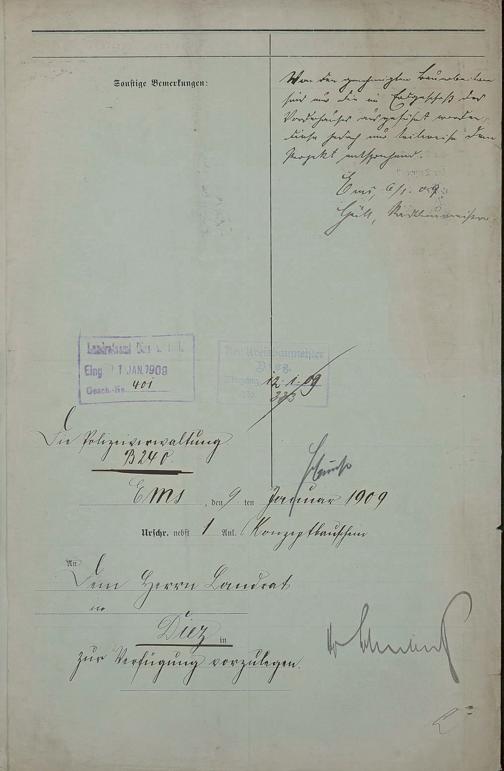 Sonstige Bemerkungen:
Von den genehmigten Bauarbeiten
sind nur die im Erdgeschoß des
Vorderhauses ausgeführt worden,
diese jedoch nur teilweise dem
Projekt entsprechend.
Ems, 6/1. 09.
Stadtbaumeister
Landratsamt
Eing. 11 JAN. 1909
Gesch.-Nr. 401
Kreisbaumeister
Diez.
12.1.09
Die Polizeiverwaltung
B 240.
Ems, den 9 ten Januar 1909
Urschr. nebst 1 Anl.
An
Dem Herrn Landrat
Diez in
zur Verfügung vorzulegen.